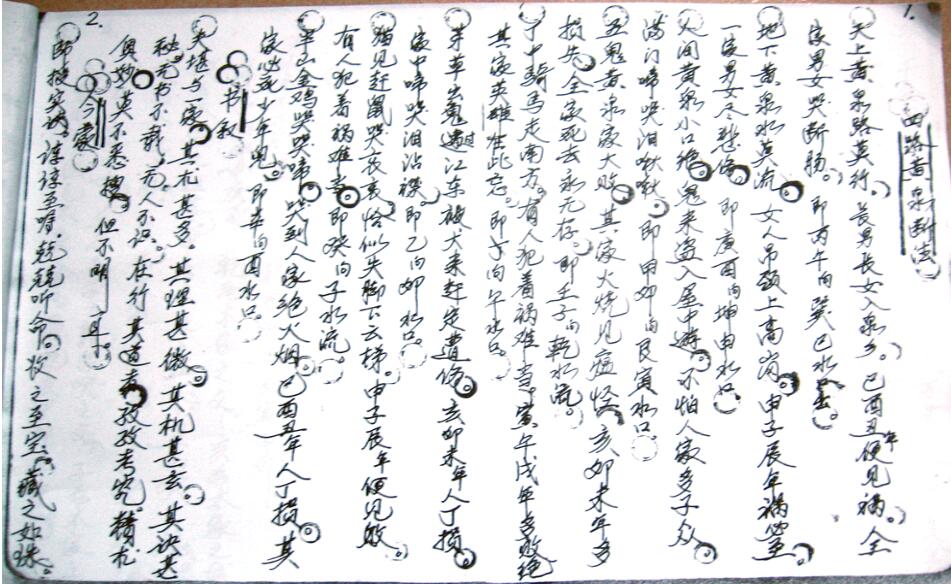 1.
四路黄泉断法
天上黄泉路莫行。长男长女入泉乡。己酉丑年便见祸。全
家男女哭断肠。即丙午向巽巳水去。
地下黄泉水莫流 女人吊颈上高岗。申子辰年祸必至
一家男女尽悲伤 即庚酉向坤申水口。
人间黄泉小口绝 鬼来盗入屋中游 不怕人家多子众
满门啼哭泪啾啾。即甲卯向艮寅水口
五鬼黄泉家大败 其家火烧见瘟怪 亥卯未年多
损失 全家死去永无存。即壬子向乾水流。
丁中骑马走南方。有人犯着祸难当。寅午戌年多败绝
其家英雄在此忘。即丁向午水口。
茅草出鬼遇过江东 被犬来赶定遭伤。亥卯未年人丁损
家中啼哭泪沾襟。即乙向卯水口。
猫见赶鼠哭哀哀 恰似失脚下云梯。申子辰年便见败。
有人犯着祸难幸 即癸向子水流。
半山金鸡哭哭啼 哭到人家绝火烟 己酉丑年人丁损 其
家必死少年鬼。即辛向酉水口。
书叙
夫堪与一家 其术甚多。其理甚微 其机甚玄 其诀甚
秘。无书不载。无人不识。在行其道者孜孜考究。精札
奥妙莫不悉搜。但不明 耳。
2.
今蒙
即授实诀。谆谆至嘱。兢兢听命。收之至宝。藏之如珠。